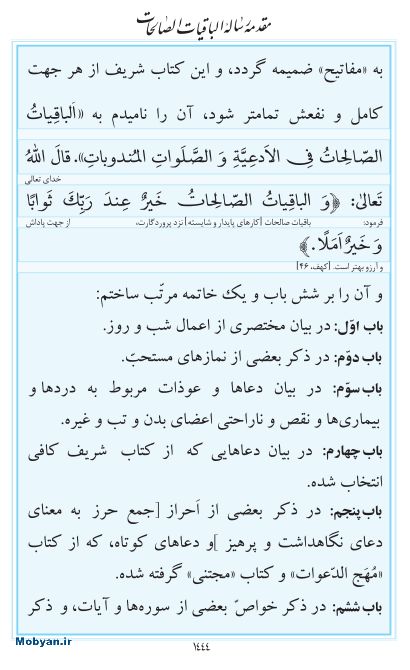 مقدمه رسالهٔ الباقیات الصالحات
به «مفاتیح» ضمیمه گردد، و این کتاب شریف از هر جهت
کامل و نفعش تمامتر شود، آن را نامیدم به «اَلباقِیاتُ
الصّالِحاتُ فِی الاَدعِیَّةِ وَ الصَّلَواتِ المَندوباتِ». قالَ اللّٰهُ
خدای تعالی
تَعالیٰ: ﴿وَ الباقِیاتُ الصّالِحاتُ خَیرٌ عِندَ رَبِّکَ ثَوابًا
فرمود: باقیات صالحات [کارهای پایدار و شایسته] نزد پروردگارت، از جهت پاداش
وَ خَیرٌ اَمَلًا.﴾
و آرزو بهتر است. [کهف، ۴۶]
و آن را بر شش باب و یک خاتمه مرتّب ساختم:
باب اوّل: در بیان مختصری از اعمال شب و روز.
باب دوّم: در ذکر بعضی از نمازهای مستحبّ.
باب سوّم: در بیان دعاها و عوذات مربوط به دردها و
بیماری‌ها و نقص و ناراحتی اعضای بدن و تب و غیره.
باب چهارم: در بیان دعاهایی که از کتاب شریف کافی
انتخاب شده.
باب پنجم: در ذکر بعضی از اَحراز [جمع حرز به معنای
دعای نگاهداشت و پرهیز ]و دعاهای کوتاه، که از کتاب
«مُهَج الدّعوات» و کتاب «مجتنی» گرفته شده.
باب ششم: در ذکر خواصّ بعضی از سوره‌ها و آیات، و ذکر
Mobyan.ir
۱۴۴۴